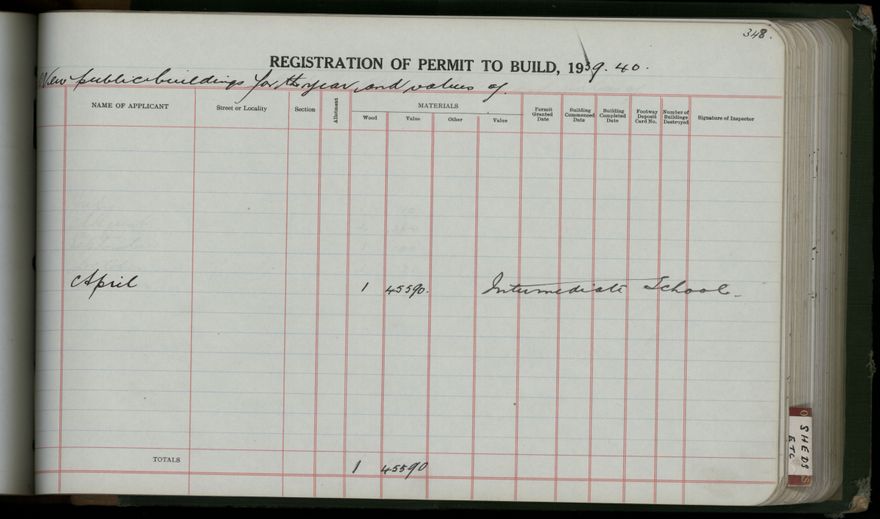 348.
REGISTRATION OF PERMIT TO BUILD, 1939.40.
New public buildings for the year and values of
NAME OF APPLICANT Street or Locality Section Allotment MATERIALS Wood Value Other Value Permit Granted Date Building Commenced Date Building Completed Date Footway Deposit Card No. Number of Buildings Destroyed Signature of Inspector
April 1 45590. Intermediate School
TOTALS 1 45590
SHEDS
ETC